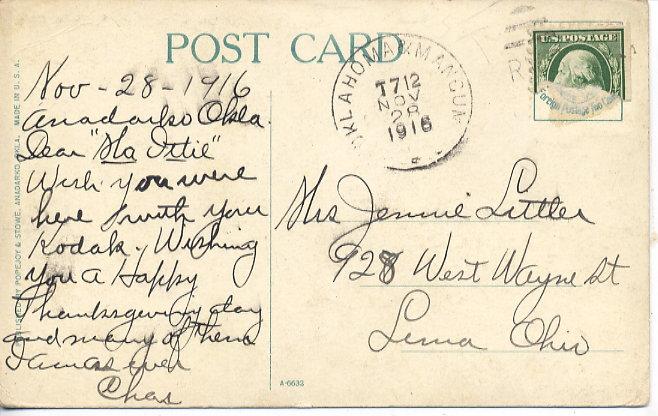 POST CARD
Nov-28-1916
Anadarko Okla.
Dear "Ma Ottie"
Wish you were
here & with your
Kodak. Wishing
you a Happy
Thanksgiving day
and many of them
I am as ever
Chas
OKLAHOMA & MANGUM
T712
NOV
28
1916
R
U.S. POSTAGE
Foreign Postage Two Cents
Mrs Jennie Littler
928 West Wayne St
Lima Ohio
PUBLISHED BY POPEJOY & STOWE, ANADARKO, OKLA. MADE IN U.S.A.
A-6632